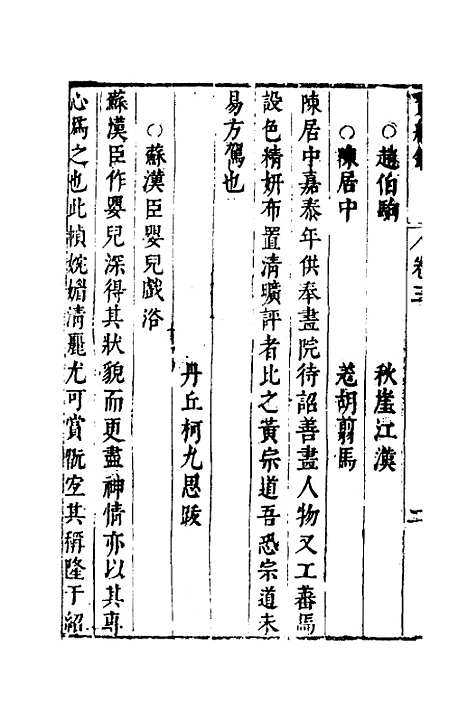 卷三 二
○趙伯駒 秋崖江漠
○陳居中 差胡翦馬
陳居中嘉泰年供奉畫院待詔善畫人物又工蕃馬
設色精妍布置清曠評者比之黃宗道吾恐宗道未
易方駕也
丹丘柯九思跋
○蘇漢臣嬰兒戲浴
蘇漢臣作嬰兒深得其狀貌而更盡神情亦以其專
心爲之也此幀婉媚清麗尤可賞玩宜其稱隆于紹